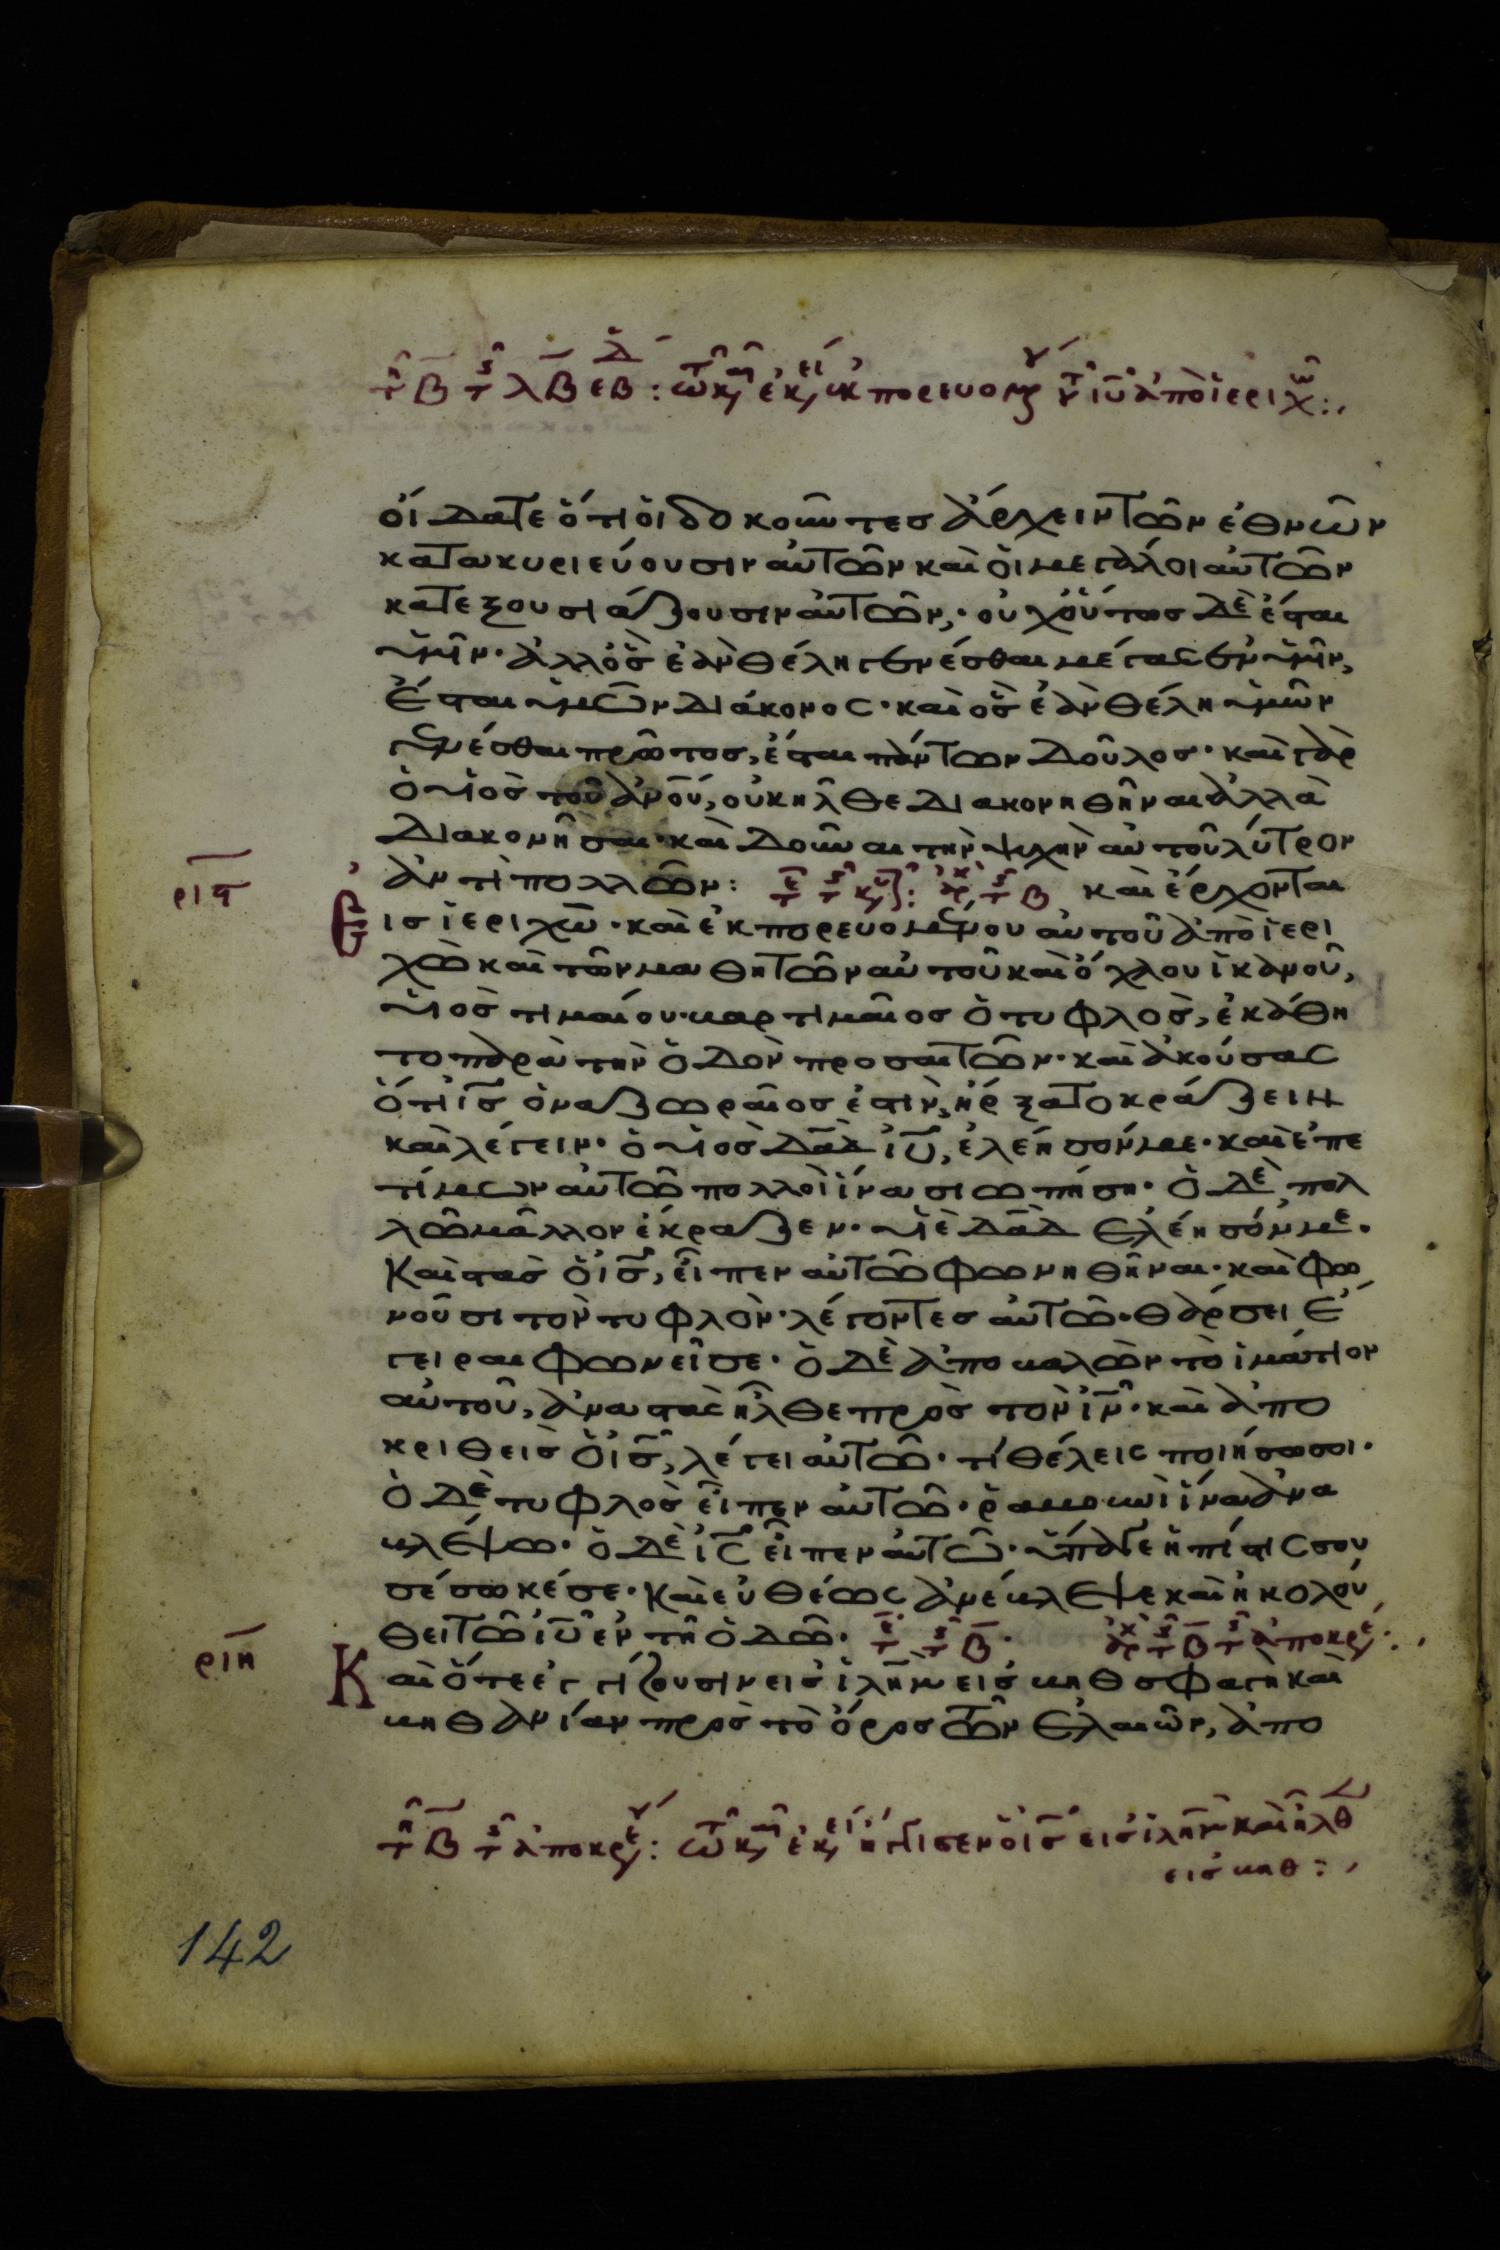 οἴδατε ὅτι οἱ δοκοῦντες ἄρχειν τῶν ἐθνῶν
κατακυριεύουσιν αὐτῶν καὶ οἱ μεγάλοι αὐτῶν
κατεξουσιάζουσιν αὐτῶν· οὐχ οὕτως δὲ ἔσται
ὑμῖν· ἀλλ' ὃς ἐὰν θέλη γενέσθαι μέγας ἐν ὑμῖν,
ἔσται ὑμῶν διάκονος· καὶ ὃς ἐὰν θέλη ὑμῶν
γενέσθαι πρῶτος, ἔσται πάντων δοῦλος· καὶ γὰρ
ὁ υἱὸς τοῦ ἀνου, οὐκ ἦλθε διακονηθῆναι ἀλλὰ
διακονῆσαι· καὶ δοῦναι τὴν ψυχὴν αὐτοῦ λύτρον
ριζ ἀντὶ πολλῶν: καὶ ἔρχονται
Εἰς ἱεριχώ· καὶ ἐκπορευομένου αὐτοῦ ἀπὸ ἱερι
χὼ καὶ τῶν μαθητῶν αὐτοῦ καὶ ὄχλου ἱκανοῦ,
υἱὸς τιμαίου βαρτιμαῖος ὁ τυφλὸς, ἐκάθη
το παρὰ τὴν ὁδὸν προσαιτῶν· καὶ ἀκούσας
ὅτι ις ὁ ναζωραῖος ἐστιν, ἤρξατο κράζειν
καὶ λέγειν· ὁ υἱὸς δαδ ιυ, ἐλέησόν με· καὶ ἐπε
τίμων αὐτῶ πολλοὶ ἵνα σιωπήση· ὁ δὲ πολ
λῶ μᾶλλον ἔκραζεν· υἱὲ δαδ ἐλέησόν με·
Καὶ στὰς ὁ ις, εἶπεν αὐτῶ φωνηθῆναι· καὶ φω
νοῦσι τὸν τυφλὸν λέγοντες αὐτῶ· θάρσει ἔ
γειραι φωνεῖ σε· ὁ δὲ ἀποβαλὼν τὸ ἱμάτιον
αὐτοῦ, ἀναστὰς ἦλθε πρὸς τὸν ιν· καὶ ἀπο
κριθεὶς ὁ ις, λέγει αὐτῶ· τί θέλεις ποιήσω σοι·
ὁ δὲ τυφλὸς εἶπεν αὐτῶ· ῥαββουνὶ ἵνα ἀνα
βλέψω· ὁ δὲ ις εἶπεν αὐτῶ· ὕπαγε ἡ πίστις σου
σέσωκέ σε· καὶ εὐθέως ἀνέβλεψε καὶ ἠκολού
θει τῶ ιυ ἐν τῆ ὁδῶ·
ριη Καὶ ὅτε ἐγγίζουσιν εἰς ἱλημ εἰς βηθσφαγὴ καὶ
βηθανίαν πρὸς τὸ ὄρος τῶν ἐλαιῶν, ἀπο
εἰς βηθ:
142